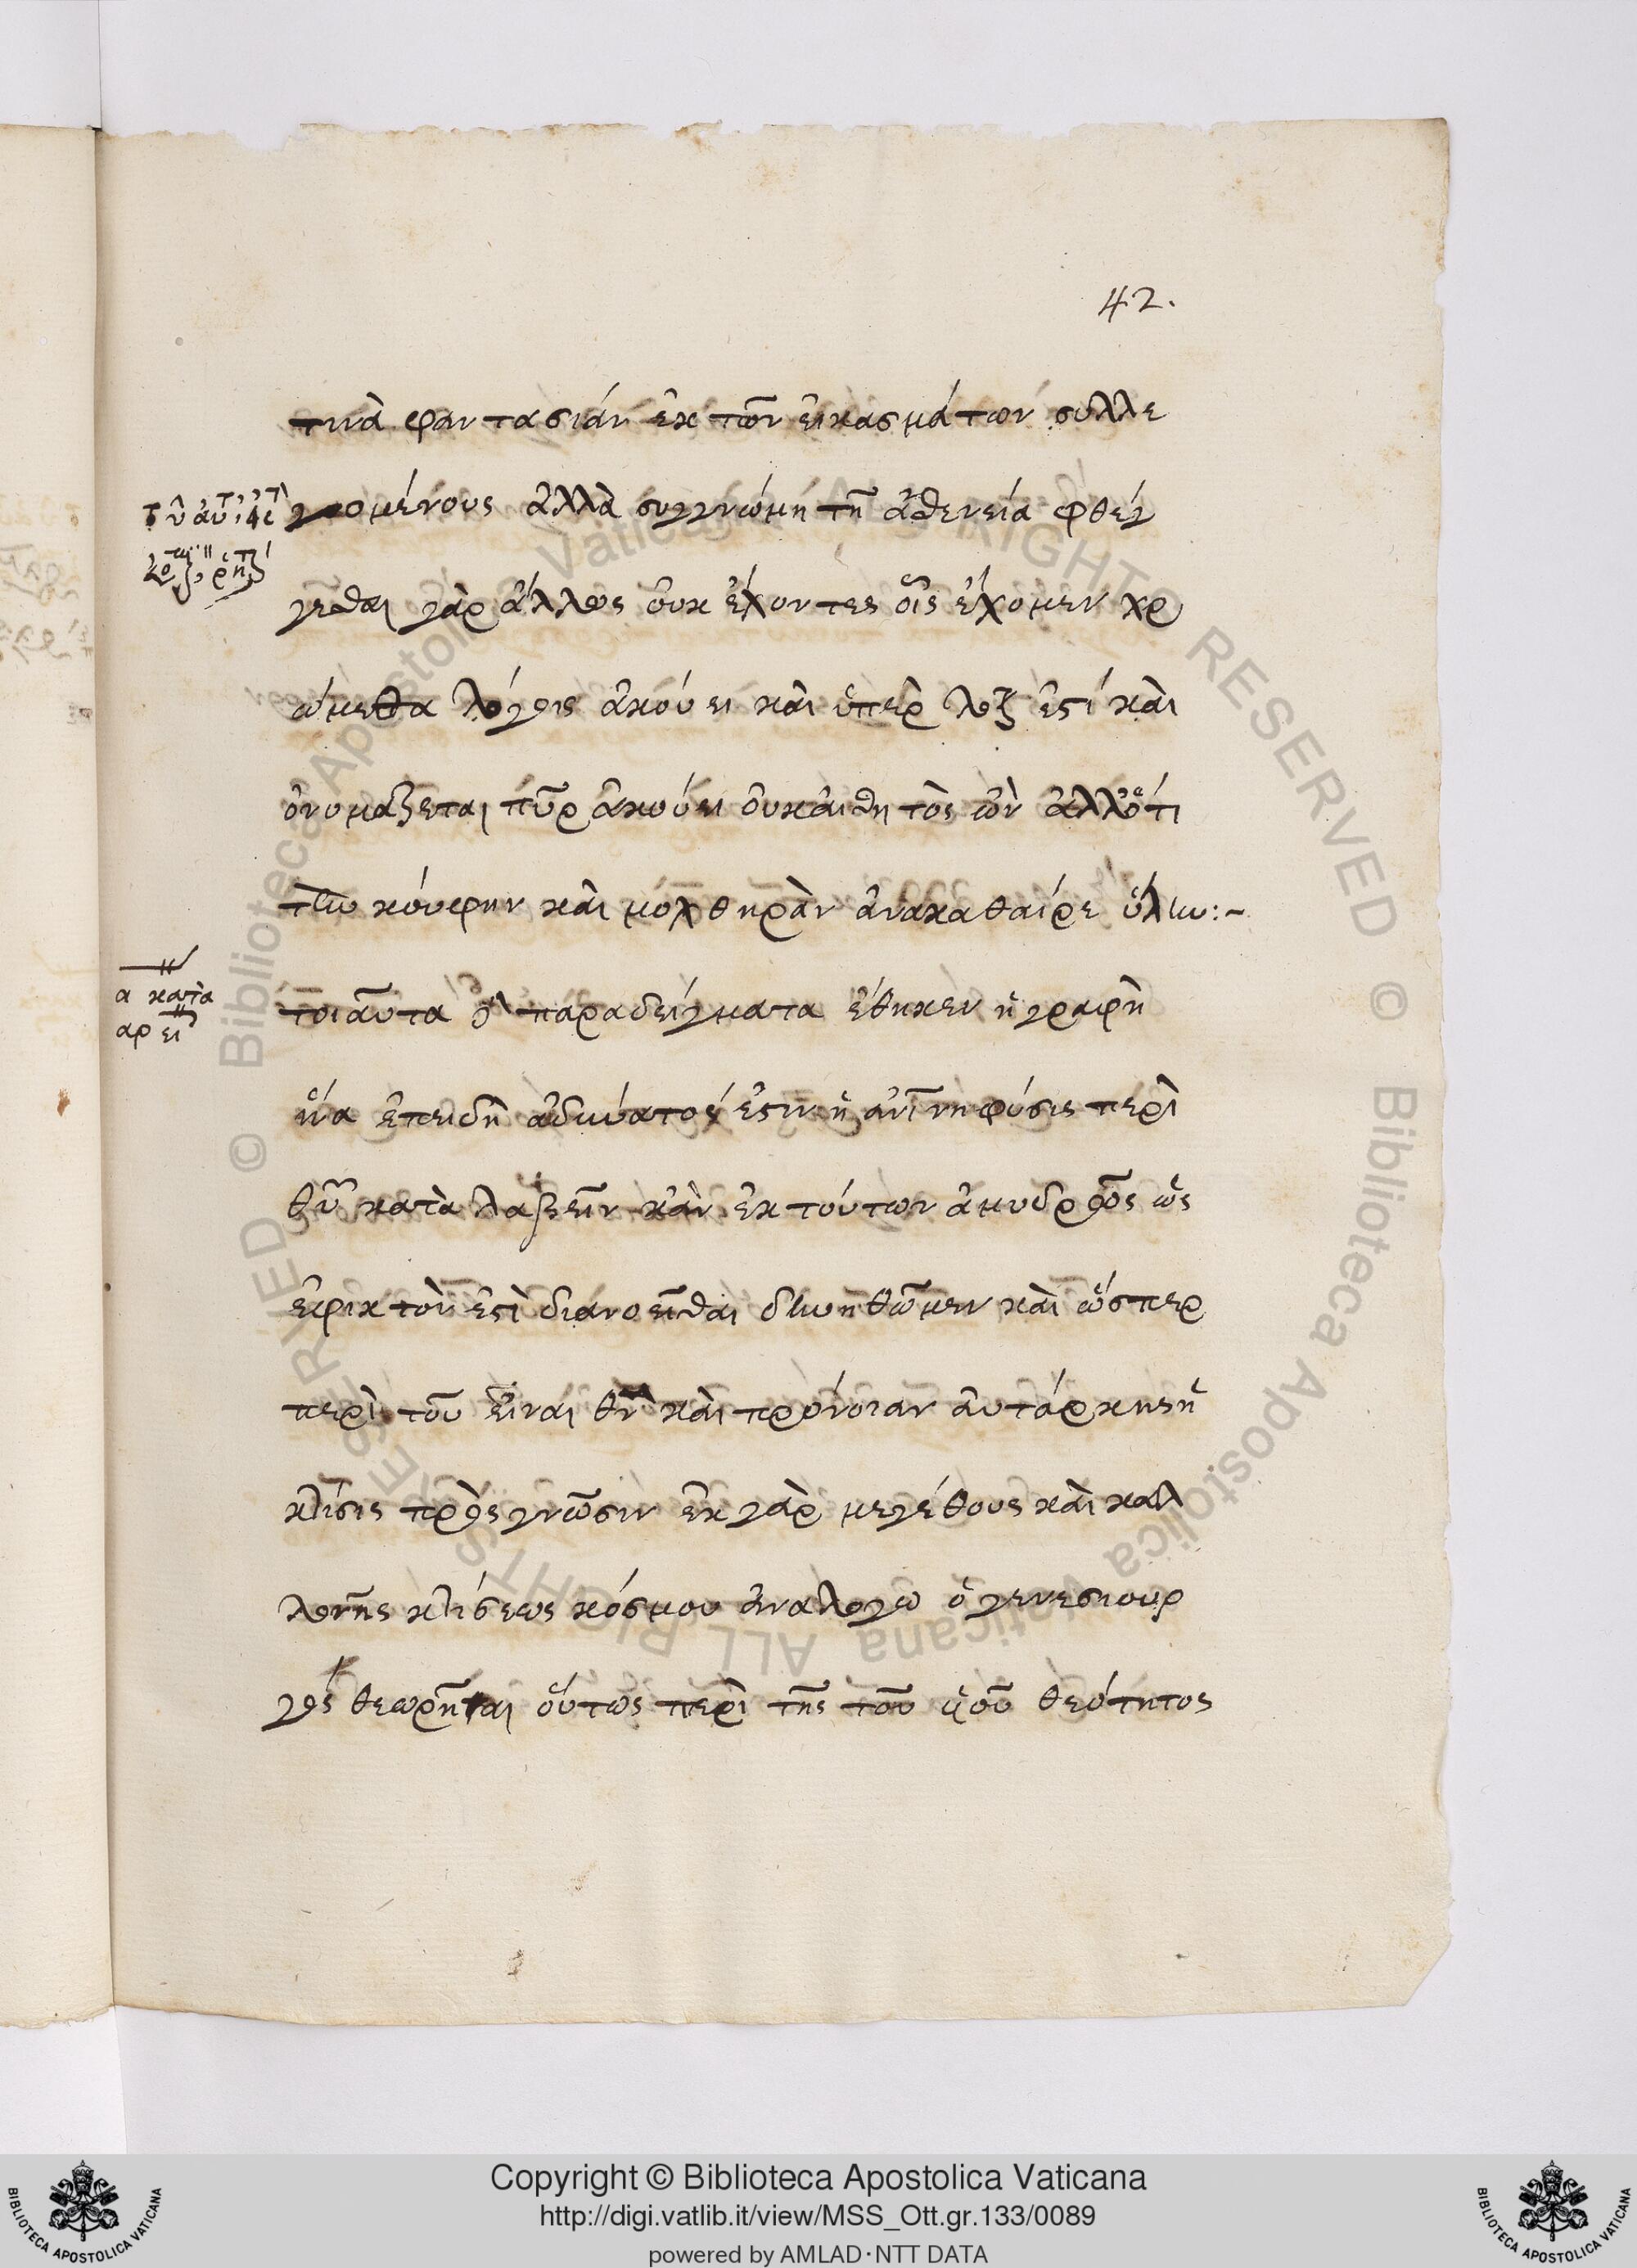 42.
τινὰ φαντασιάν ἐκ τῶν εἰκασμάτων συλλε
γομένους ἀλλὰ συγγνώμη τῆ ἀσθενεία φθέγ
γεσθαι γὰρ ἄλλως οὐκ ἔχοντες οἷς ἔχομεν χρ
ώμεθα λόγοις ἀκούει καὶ ὑπὲρ ἐστί καὶ
ὀνομάζεται πῦρ ἀκούει οὐκ αἰσθητὸς ὢν ἀλλ' ὅτι
τὴν κούφην καὶ μοχθηρὰν ἀνακαθαίρε ὕλην:~
τοιαῦτα δὲ παραδείγματα ἔθηκεν ἡ γραφὴ
α κατὰ
ἵνα ἐπειδὴ ἀδυνάτος ἐστιν ἡ ἀνίνη φύσις περὶ
θῦ καταλαβεῖν κἀν ἐκ τούτων ἀμυδρῶς ὡς
ἐφικτὸν ἐστὶ διανοεῖσθαι δυνηθῶμεν καὶ ὥσπερ
περὶ τοῦ εἶναι θν καὶ πρόνοιαν αὐτάρκης ἡ
κτίσις πρὸς γνῶσιν ἐκ γὰρ μεγέθους καὶ καλ
λονῆς κτίσεως κόσμου ἀναλογω ὁ γενεσιουρ
γὸς θεωρῆται οὕτως περὶ τῆς τοῦ ὑοῦ θεότητος
Copyright © Biblioteca Apostolica Vaticana
http://digi.vatlib.it/view/MSS_Ott.gr.133/0089
powered by AMLAD·NTT DATA
BIBLIOTECA APOSTOLICA VATICANA
BIBLIOTECA APOSTOLICA VATICANA
© Biblioteca Apostolica Vaticana ALL RIGHTS RESERVED
© Biblioteca Apostolica Vaticana ALL RIGHTS RESERVED